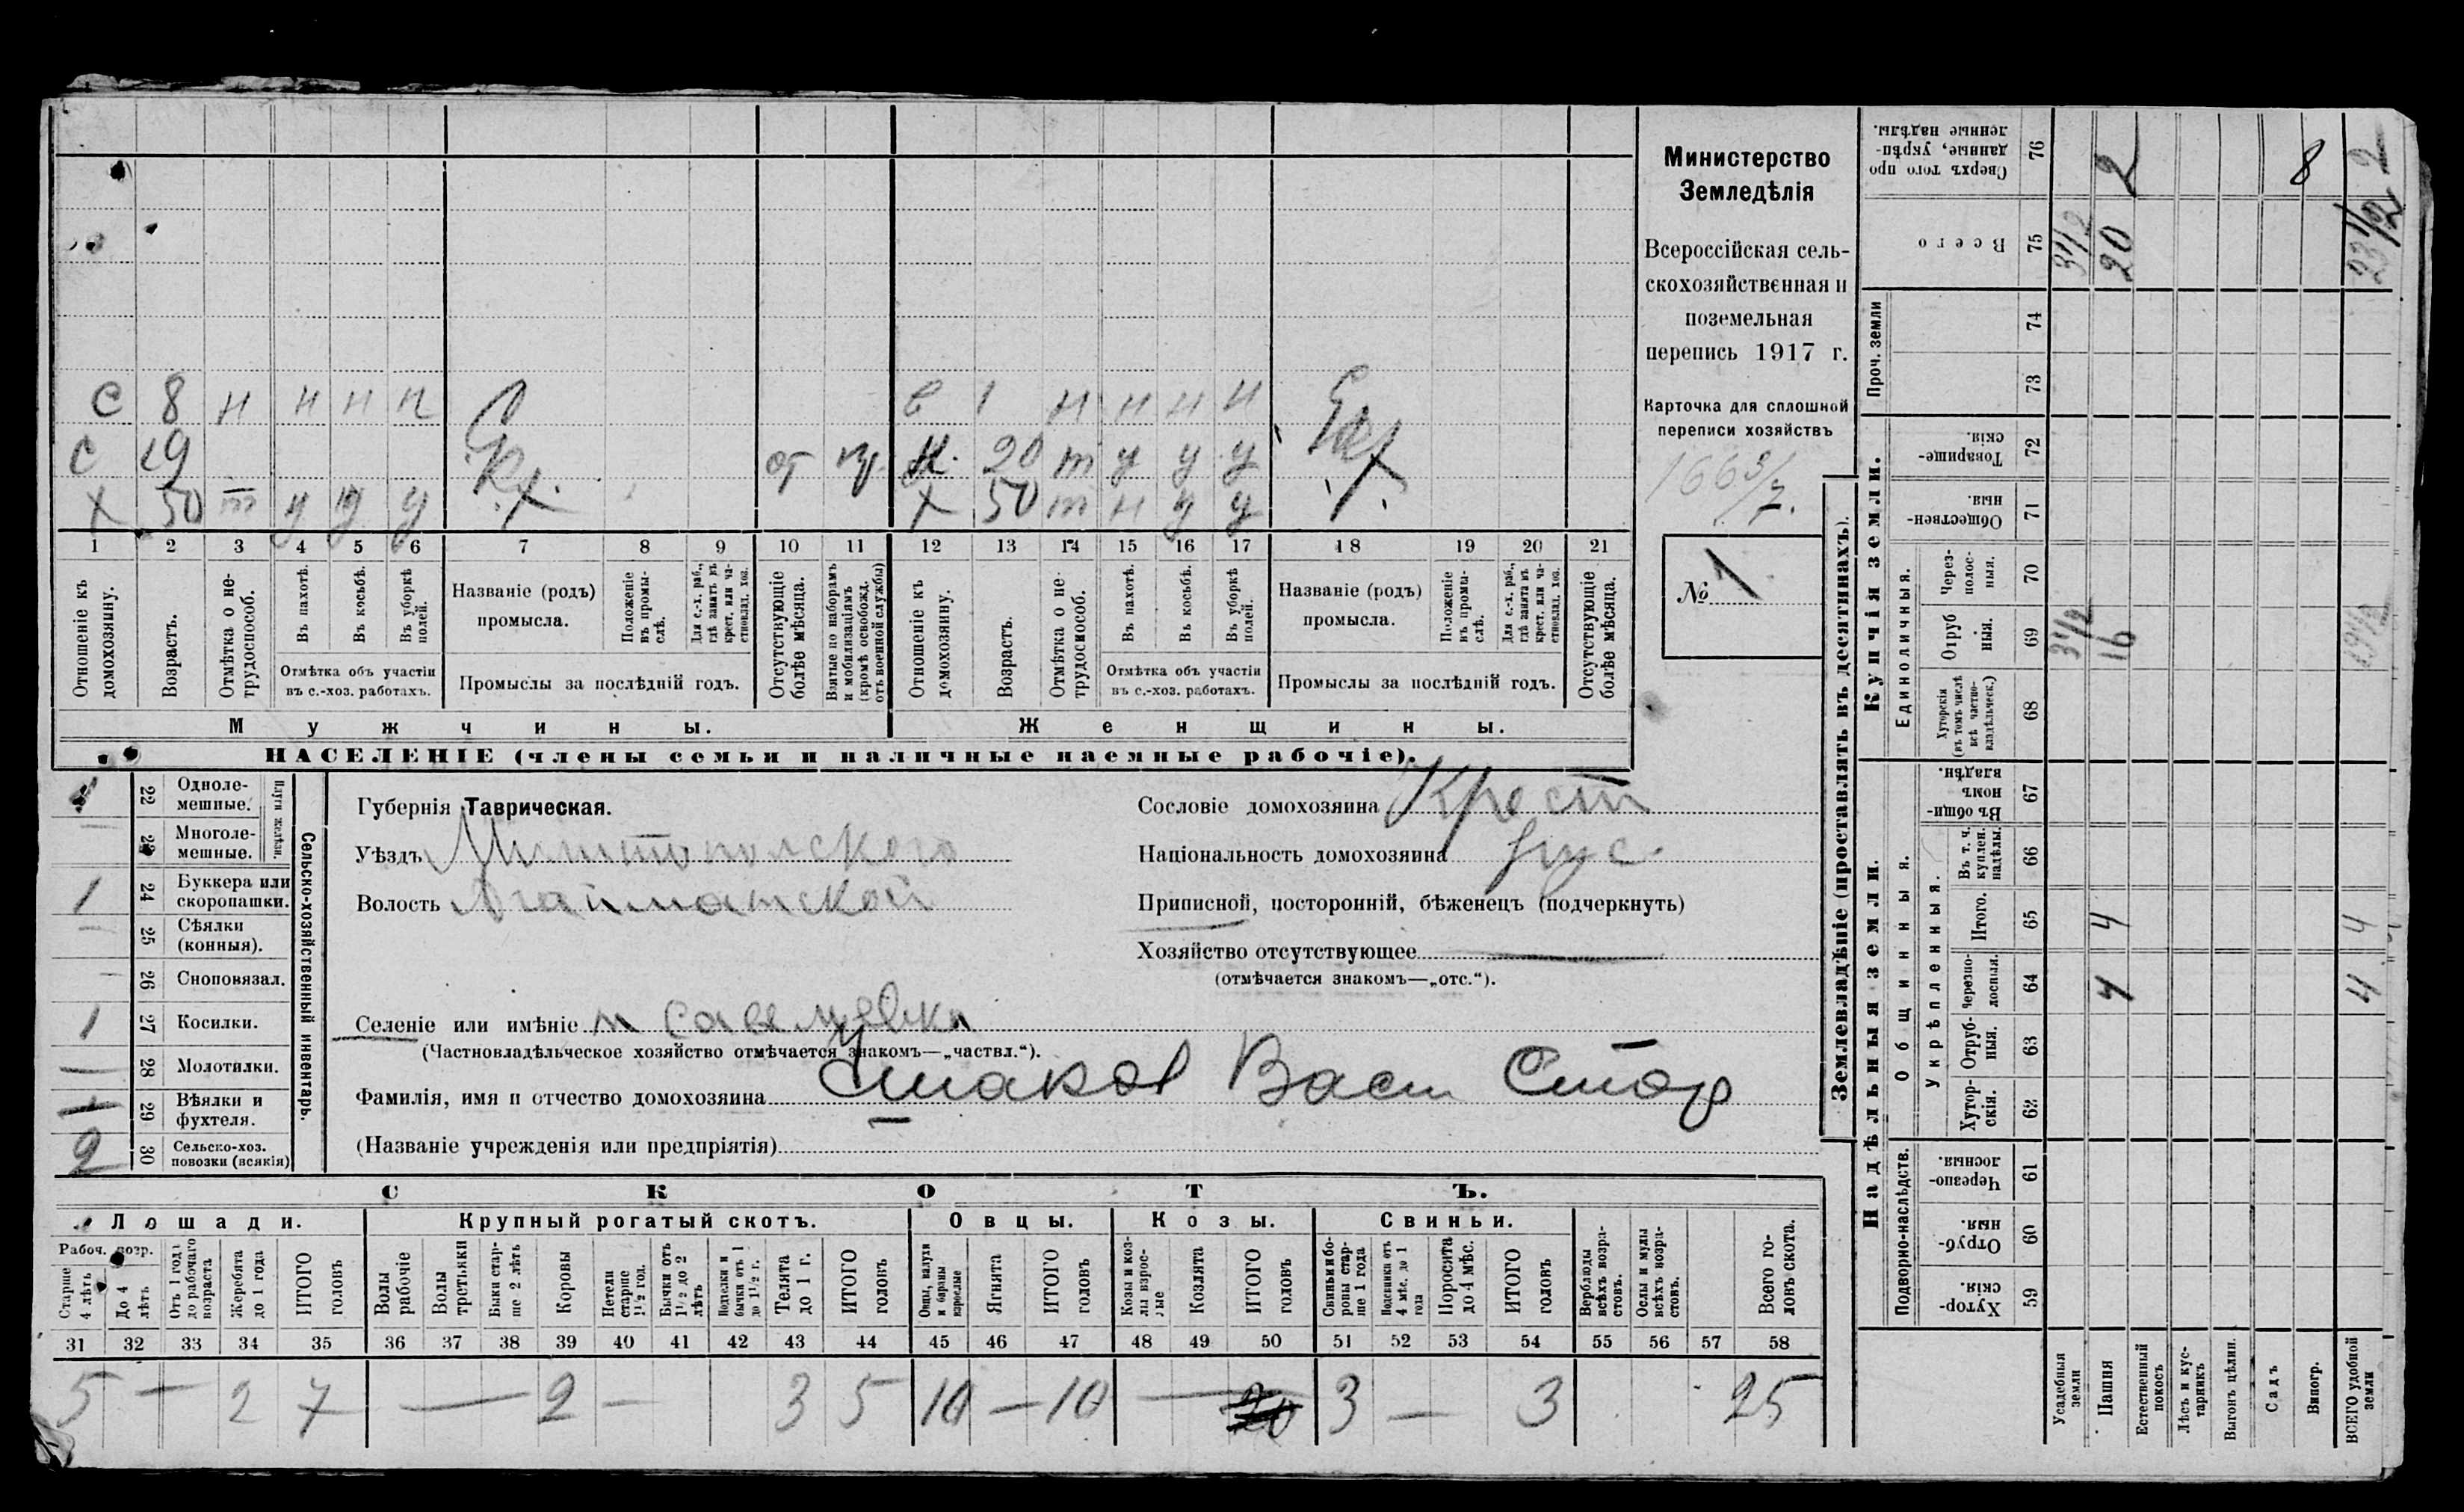 с 8 н н н н с 1 н н н н
с 19 от н. 20 т у у у
х 50 т у у у Кх. х 50 т н у у
1 2 3 4 5 6 7 8 9 10 11 12 13 14 15 16 17 18 19 20 21
Отношеніе къ домохозяину.
Возрастъ.
Отмѣтка о нетрудоспособ.
Въ пахотѣ.
Въ косьбѣ.
Въ уборкѣ полей.
Отмѣтка объ участіи въ с.-хоз. работахъ.
Названіе (родъ) промысла.
Положеніе въ промыслѣ.
Для с.-х. раб., гдѣ занятъ въ крест. или частновлад. хоз.
Промыслы за послѣдній годъ.
Отсутствующіе болѣе мѣсяца.
Взятые по наборамъ и мобилизаціямъ (кромѣ освобожд. отъ военной службы)
Отношеніе къ домохозяину.
Возрастъ.
Отмѣтка о нетрудоспособ.
Въ пахотѣ.
Въ косьбѣ.
Въ уборкѣ полей.
Отмѣтка объ участіи въ с.-хоз. работахъ.
Названіе (родъ) промысла.
Положеніе въ промыслѣ.
Для с.-х. раб., гдѣ занята въ крест. или частновлад. хоз.
Промыслы за послѣдній годъ.
Отсутствующіе болѣе мѣсяца.
Мужчины.
Женщины.
НАСЕЛЕНІЕ (члены семьи и наличные наемные рабочіе).
Министерство
Земледѣлія
Всероссійская сель-
скохозяйственная и
поземельная
перепись 1917 г.
Карточка для сплошной
переписи хозяйствъ
1663/7.
№ 1
Сельско-хозяйственный инвентарь.
Плуги желѣзн.
1 22 Одноле-мешные.
— 23 Многоле-мешные.
1 24 Буккера или скоропашки.
— 25 Сѣялки (конныя).
— 26 Сноповязал.
1 27 Косилки.
— 28 Молотилки.
29 Вѣялки и фухтеля.
2 30 Сельско-хоз. повозки (всякія)
Губернія Таврическая.
Уѣздъ Мелитопольского
Волость Агайманской
Селеніе или имѣніе
(Частновладѣльческое хозяйство отмѣчается знакомъ—„частвл.“).
Фамилія, имя и отчество домохозяина
(Названіе учрежденія или предпріятія)
Сословіе домохозяина Крест
Національность домохозяина рус.
Приписной, посторонній, бѣженецъ (подчеркнуть)
Хозяйство отсутствующее —
(отмѣчается знакомъ—„отс.“).
СКОТЪ.
Лошади.
Рабоч. возр.
Старше 4 лѣтъ
До 4 лѣтъ
Отъ 1 года до рабочаго возраста
Жеребята до 1 года
ИТОГО головъ
Крупный рогатый скотъ.
Волы рабочіе
Волы третьяки
Быки старше 2 лѣтъ
Коровы
Нетели старше 1½ год.
Бычки отъ 1½ до 2 лѣтъ
Подтелки и бычки отъ 1 до 1½ г.
Телята до 1 г.
ИТОГО головъ
Овцы.
Овцы, валухи и бараны взрослые
Ягнята
ИТОГО головъ
Козы.
Козы и козлы взрослые
Козлята
ИТОГО головъ
Свиньи.
Свиньи и боровы старше 1 года
Подсвинки отъ 4 мѣс. до 1 года
Поросята до 4 мѣс.
ИТОГО головъ
Верблюды всѣхъ возрастовъ.
Ослы и мулы всѣхъ возрастовъ.
Всего головъ скота.
31 32 33 34 35 36 37 38 39 40 41 42 43 44 45 46 47 48 49 50 51 52 53 54 55 56 57 58
5 — 2 7 — 2 — 3 5 10 — 10 — 20 3 — 3 25
Землевладѣніе (проставлять въ десятинахъ).
Надѣльныя земли.
Подворно-наслѣдств.
Хуторскія 59
Отрубныя. 60
Черезполосныя. 61
Общинныя.
Укрѣпленныя.
Хуторскія. 62
Отрубныя. 63
Черезполосныя. 64
Итого. 65
Въ т. ч. куплен. надѣлы. 66
Въ общиномъ владѣн. 67
Купчія земли.
Единоличныя.
Хуторскія (въ томъ числѣ всѣ частновладѣльческ.) 68
Отрубныя. 69
Черезполосныя. 70
Общественныя. 71
Товарищескія. 72
Проч. земли
73
74
Всего 75
Сверхъ того проданные, укрѣпленные надѣлы. 76
Усадебныя земли 3½ 3½
Пашня 4 4 16 20 2
Естественный покосъ
Лѣсъ и кустарникъ
Выгонъ цѣлин.
Садъ
Виногр. 8
ВСЕГО удобной земли 4 4 19½ 23½ 2